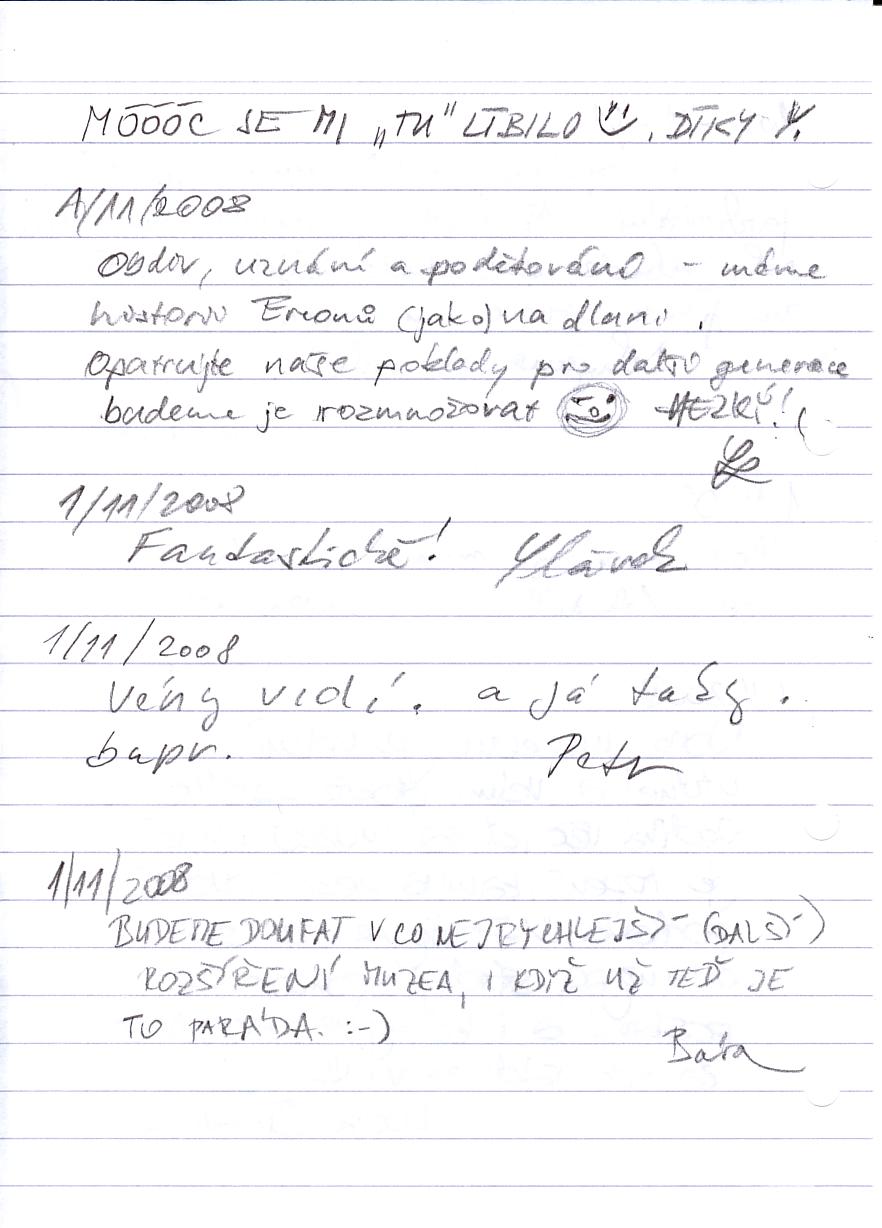 MÓÓÓC SE MI „TU" LÍBILO, DÍKY
1/11/2008
Obdiv, uznání a poděkováno – máme
historii Emonů (jako) na dlani.
Opatrujte naše poklady pro další generace
budeme je rozmnožovat HEZKÝ!
1/11/2008
Fantastické! Slávek
1/11/2008
vidí. a já taky.
bupr. Petr
1/11/2008
BUDEME DOUFAT V CO NEJRYCHLEJŠÍ (DALŠÍ)
ROZŠÍŘENÍ MUZEA, I KDYŽ UŽ TEĎ JE
TO PARÁDA. :-)
Bára